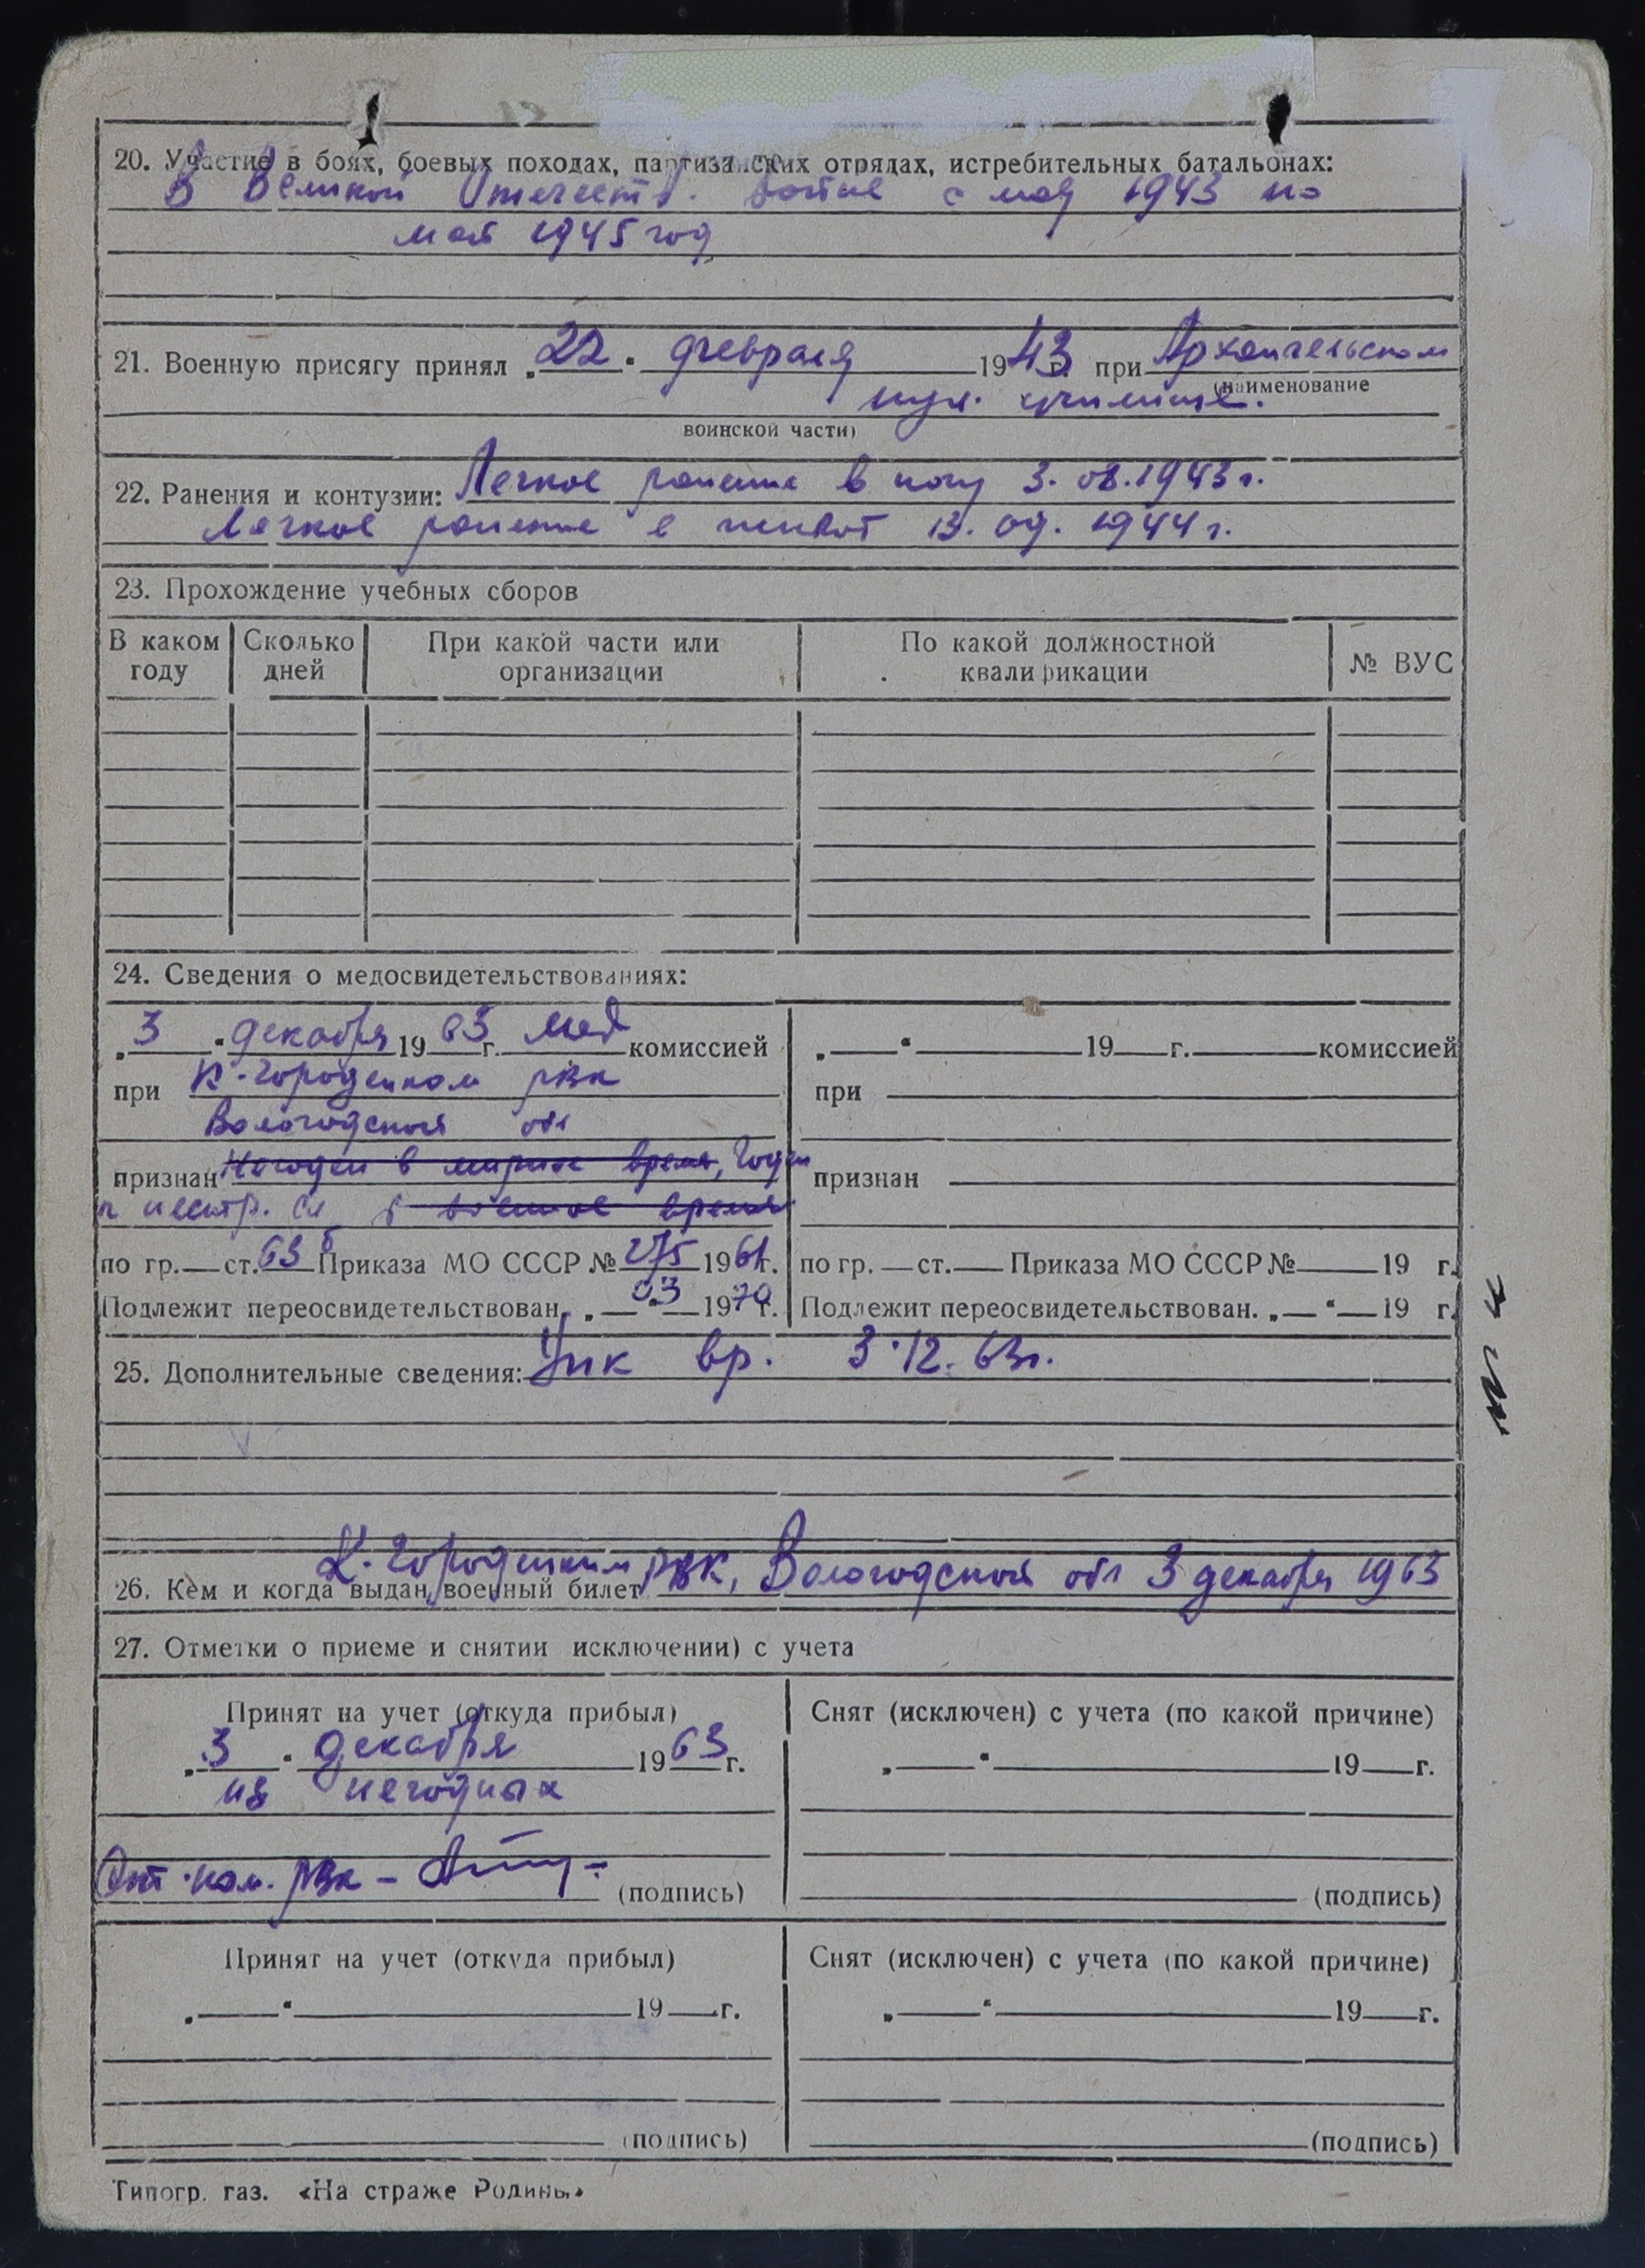 20. Участие в боях, боевых походах, партизанских отрядах, истребительных батальонах:
В Великой Отечеств. войне с мая 1943 по
май 1945 год
21. Военную присягу принял „22" февраля 1943 г. при Архангельском
(наименование
пул. училище.
воинской части)
22. Ранения и контузии: Легкое ранение в ногу 3. 08. 1943 г.
Легкое ранение в живот 13. 09. 1944 г.
23. Прохождение учебных сборов
В каком году Сколько дней При какой части или организации По какой должностной квалификации № ВУС
24. Сведения о медосвидетельствованиях:
„3" декабря 1963 г. мед комиссией „ " 19 г. комиссией
при К-Городецком РВК при
Вологодской обл
признан Негоден в мирное время, годен признан
к нестр. сл в военное время
по гр. ст. 63 б Приказа МО СССР № 275 1961 г. по гр. ст. Приказа МО СССР № 19 г.
Подлежит переосвидетельствован. „ 03 " 1970 г. Подлежит переосвидетельствован. „ " 19 г.
25. Дополнительные сведения: Упк вр. 3.12.63г.
26. Кем и когда выдан военный билет К-Городецким РВК, Вологодской обл 3 декабря 1963
27. Отметки о приеме и снятии исключении) с учета
Принят на учет (откуда прибыл) Снят (исключен) с учета (по какой причине)
„3" декабря 1963 г. „ " 19 г.
из негодных
ком. РВК – (подпись) (подпись)
Принят на учет (откуда прибыл) Снят (исключен) с учета (по какой причине)
„ " 19 г. „ " 19 г.
(подпись) (подпись)
Типогр. газ. «На страже Родины»